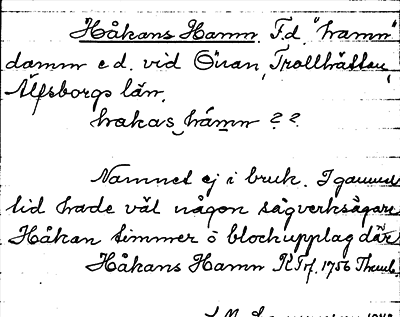 Håkans Hamn. F.d. "hamn"
damm e.d. vid Önan, Trollhättan,
Älfsborgs län.
hakas hámn ??
Namnet ej i bruk. I gammal
tid hade väl någon sågverksägare
Håkan timmer o blockupplag där
Håkans Hamn RTrf. 1756 Thunb.